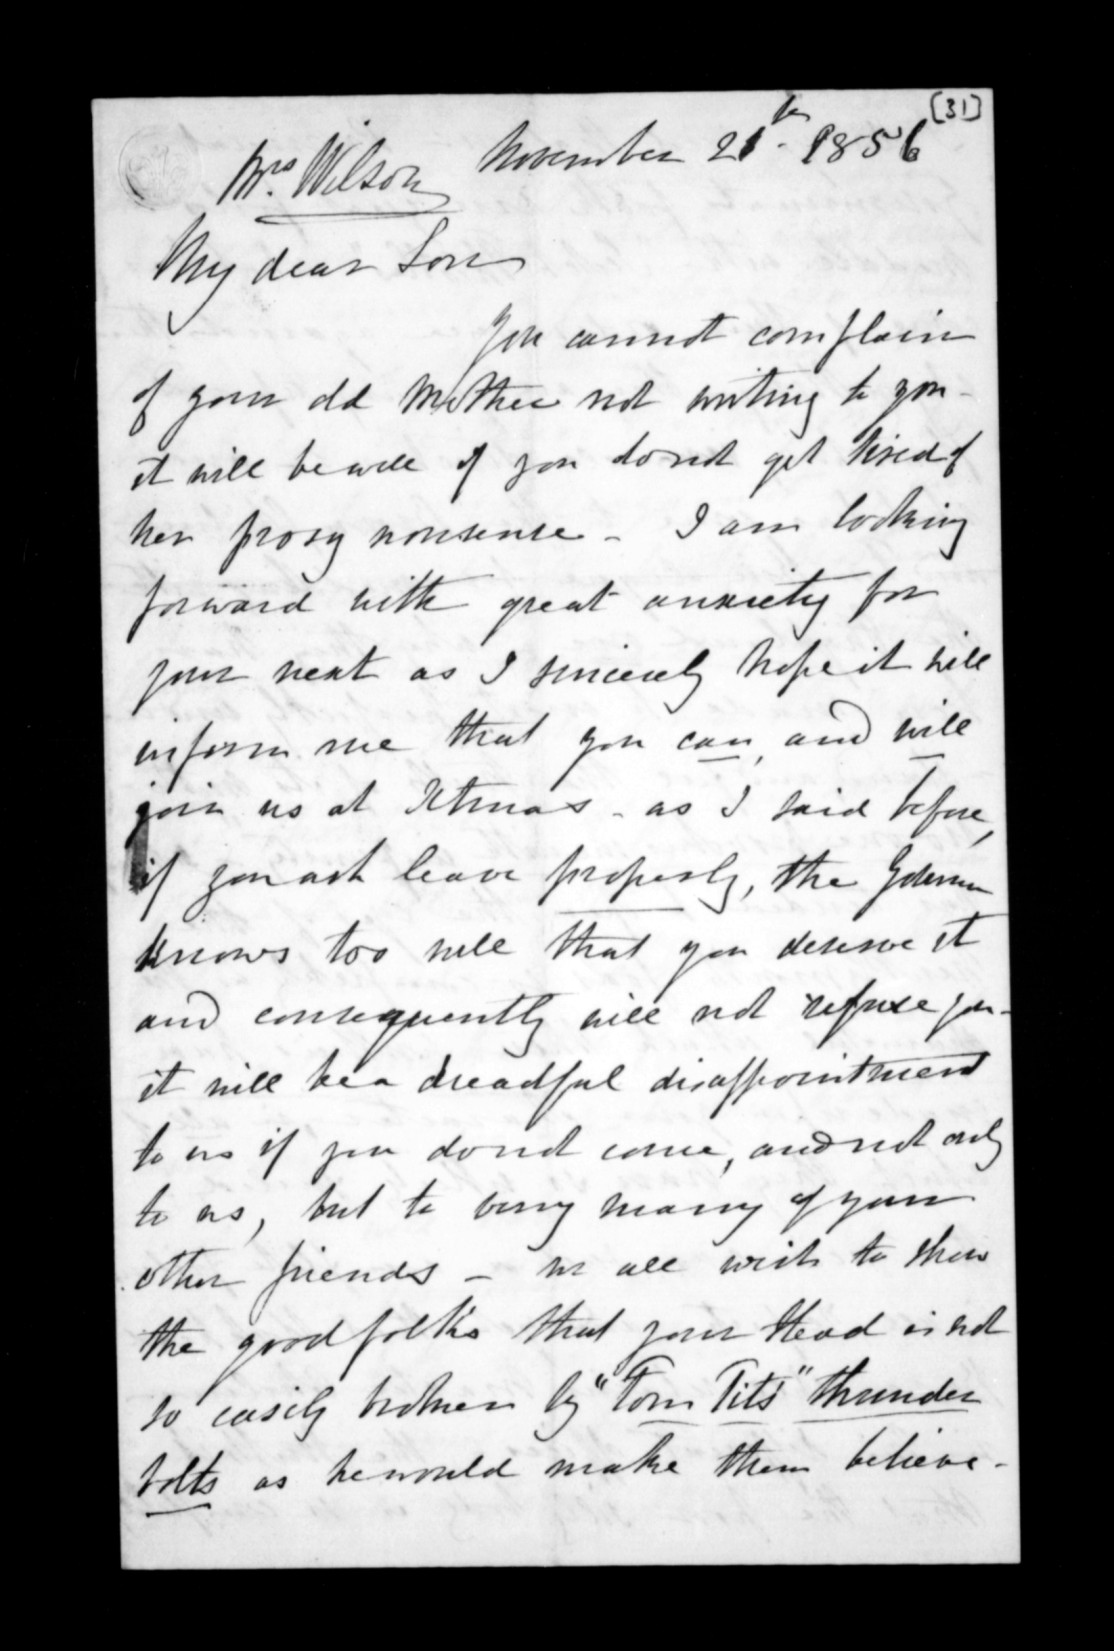 [31]
Mrs. Wilson November 21st. 1856
My dear Son
You cannot complain
of your old Mother not writing to you -
it will be well if you do not get tired of
her prosy nonsense - I am looking
forward with great anxiety for
your next as I sincerely hope it will
inform me that you can, and will
join us at Xtmas - as I said before,
if you ask leave properly, the Governor
knows too well that you deserve it
and consequently will not refuse you -
it will be a dreadful disappointment
to us if you do not come, and not only
to us, but to very many of your
other friends - we all wish to show
the good folks that your Head is not
so easily broken by "Tom Tits" thunder
bolts as he would make them believe -